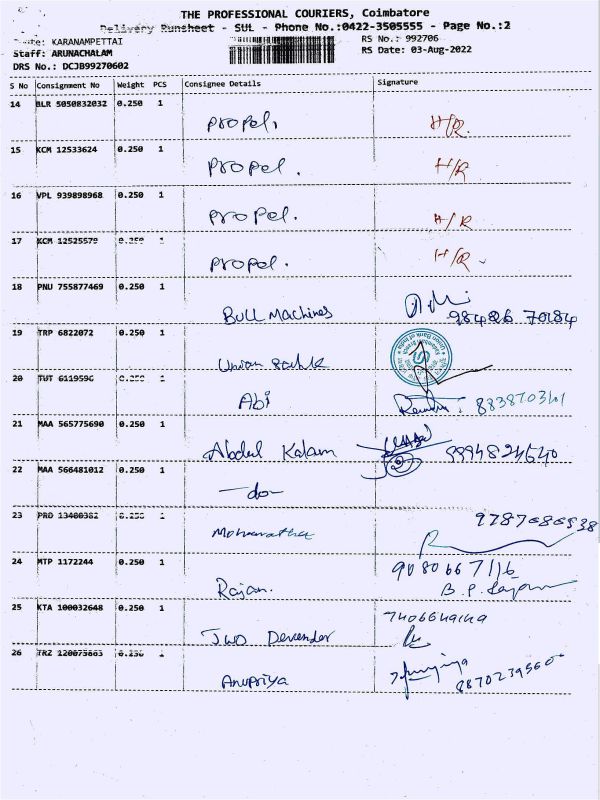 THE PROFESSIONAL COURIERS, Coimbatore
Delivery Runsheet - SUL - Phone No.:0422-3505555 - Page No.:2
KARANAMPETTAI RS No.: 992706
Staff: ARUNACHALAM RS Date: 03-Aug-2022
DRS No.: DCJB99270602
S No Consignment No Weight PCS Consignee Details Signature
14 BLR 5050832032 0.250 1 Propel. H/R.
15 KCM 12533624 0.250 1 Propel. H/R
16 VPL 939898968 0.250 1 Propel. H/R
17 KCM 12525579 0.250 1 Propel. H/R.
18 PNU 755877469 0.250 1 Bull Machines
19 TRP 6822072 0.250 1 Union
20 TUT 6119596 0.250 1 Abi 8838703101
21 MAA 565775690 0.250 1 Abdul Kalam 9994824640
22 MAA 566481012 0.250 1 -do-
23 PRD 13400382 0.250 1
24 MTP 1172244 0.250 1 Rajan. 9080667116
25 KTA 100032648 0.250 1 Two Devender
26 TRZ 0.250 1 Anupriya 8870239560